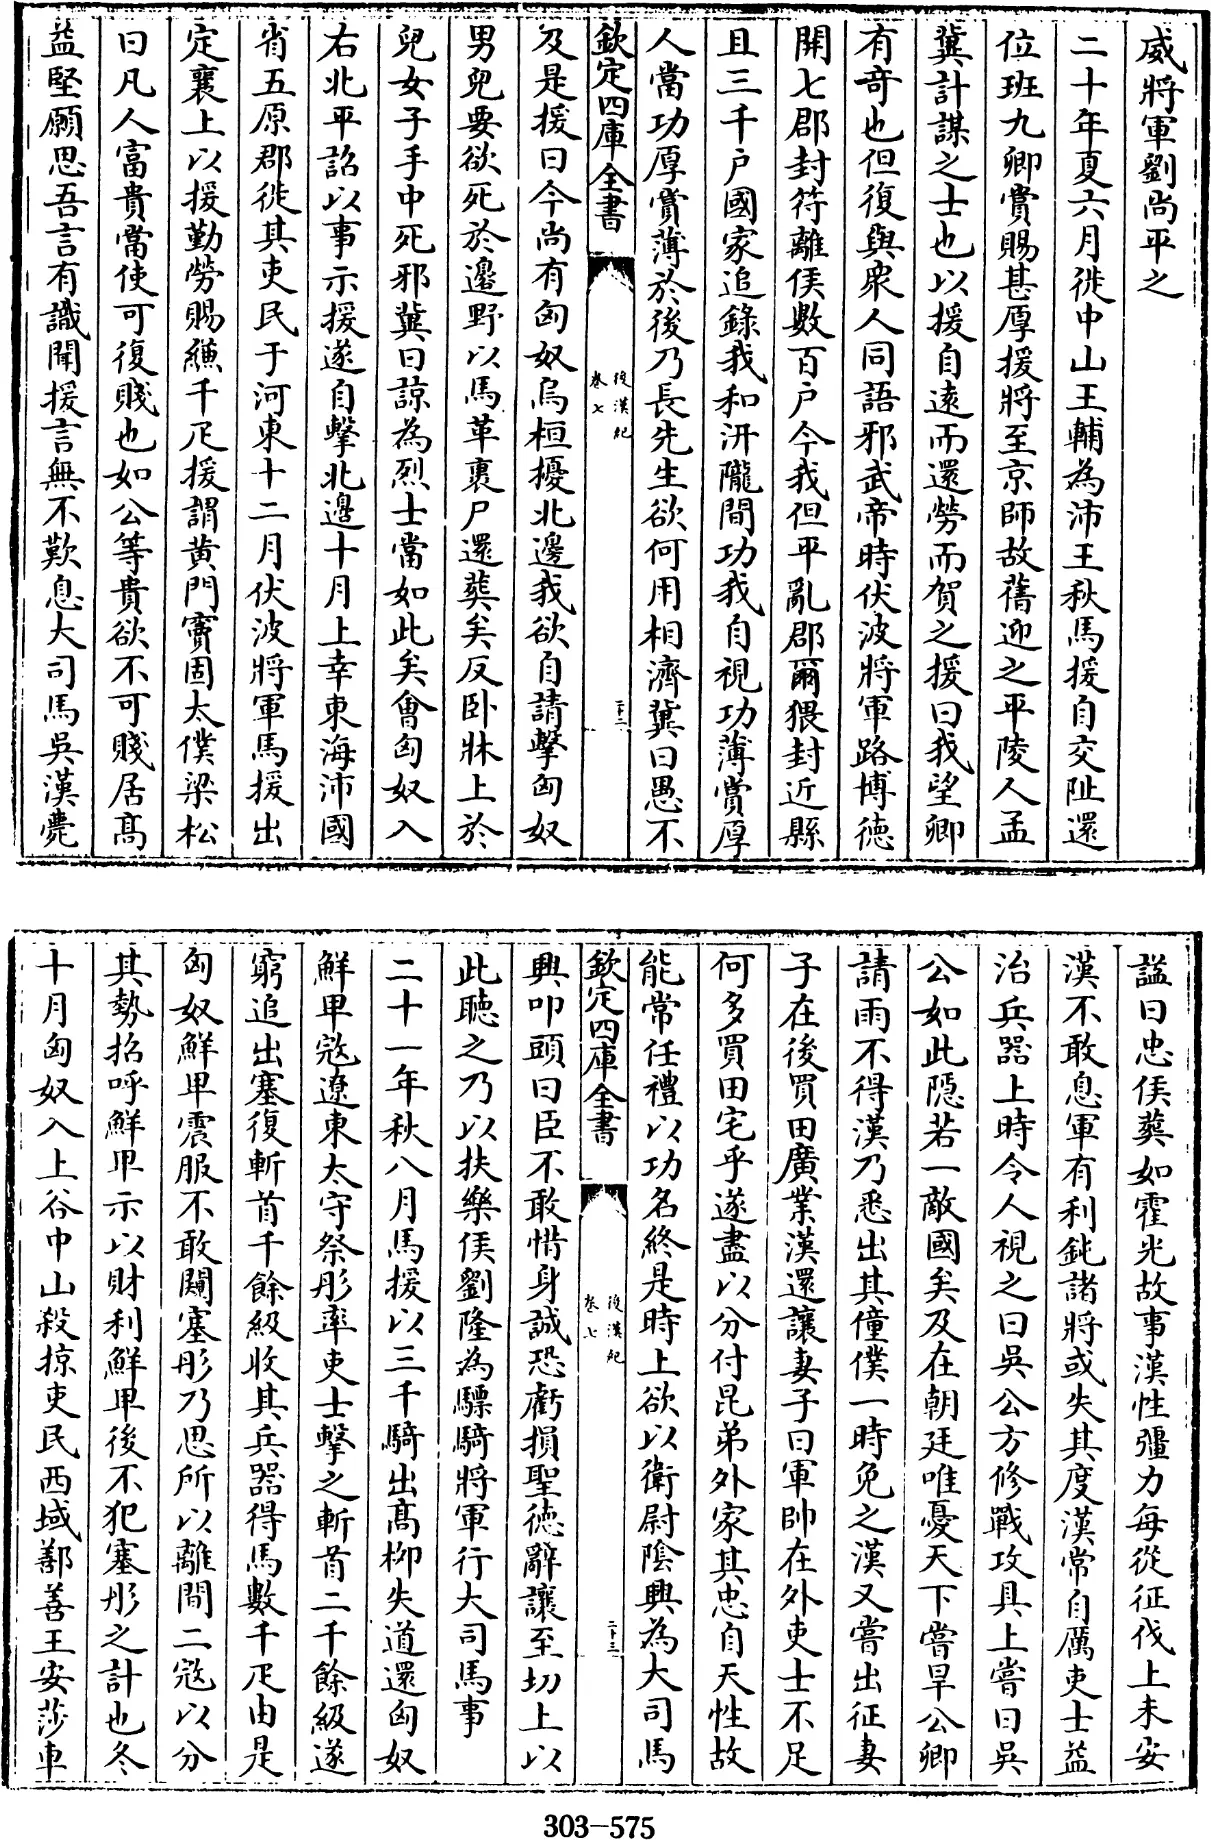 威將軍劉尚平之
二十年夏六月徙中山王輔為沛王秋馬援自交阯還
位班九卿賞賜甚厚援將至京師故舊迎之平陵人孟
冀計謀之士也以援自遠而還勞而賀之援曰我望卿
有奇也但復與衆人同語邪武帝時伏波將軍路博德
開七郡封符離侯數百户今我但平亂郡爾猥封近縣
且三千户國家追錄我和汧隴間功我自視功薄賞厚
人當功厚賞薄於後乃長先生欲何用相濟冀曰愚不
欽定四庫全書
後漢紀
卷七
二十二
及是援曰今尚有匈奴烏桓擾北邊我欲自請擊匈奴
男兒要欲死於邊野以馬革裹尸還葬矣反卧牀上於
兒女子手中死邪冀曰諒為烈士當如此矣會匈奴入
右北平詔以事示援遂自擊北邊十月上幸東海沛國
省五原郡徙其吏民于河東十二月伏波將軍馬援出
定襄上以援勤勞賜縑千疋援謂黃門竇固太僕梁松
曰凡人富貴當使可復賤也如公等貴欲不可賤居髙
益堅願思吾言有識聞援言無不歎息大司馬吳漢薨
謚曰忠侯葬如霍光故事漢性彊力每從征伐上未安
漢不敢息軍有利鈍諸將或失其度漢常自厲吏士益
治兵器上時令人視之曰吳公方修戰攻具上嘗曰吳
公如此隱若一敵國矣及在朝廷唯憂天下嘗旱公卿
請雨不得漢乃悉出其僮僕一時免之漢又嘗出征妻
子在後買田廣業漢還讓妻子曰軍帥在外吏士不足
何多買田宅乎遂盡以分付昆弟外家其忠自天性故
能常任禮以功名終是時上欲以衛尉陰興為大司馬
欽定四庫全書
後漢紀
卷七
二十三
興叩頭曰臣不敢惜身誠恐虧損聖德辭讓至切上以
此聽之乃以扶樂侯劉隆為驃騎將軍行大司馬事
二十一年秋八月馬援以三千騎出髙柳失道還匈奴
鮮卑寇遼東太守祭肜率吏士擊之斬首二千餘級遂
窮追出塞復斬首千餘級收其兵器得馬數千疋由是
匈奴鮮卑震服不敢闚塞肜乃思所以離間二寇以分
其勢招呼鮮卑示以財利鮮卑後不犯塞肜之計也冬
十月匈奴入上谷中山殺掠吏民西域鄯善王安莎車
303-575